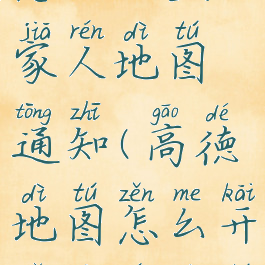 jiā rén dì tú
家人地图
tōng zhī gāo dé
通知(高德
dì tú zěn me kāi
地图怎么开